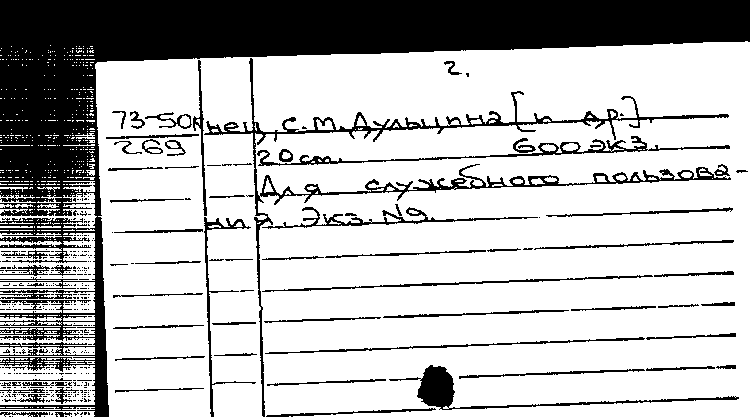 2.
73-50 нец, С.М. Дульцина [и др].
269 20 см. 600 экз.
Для служебного пользова-
ния. Экз. N9.